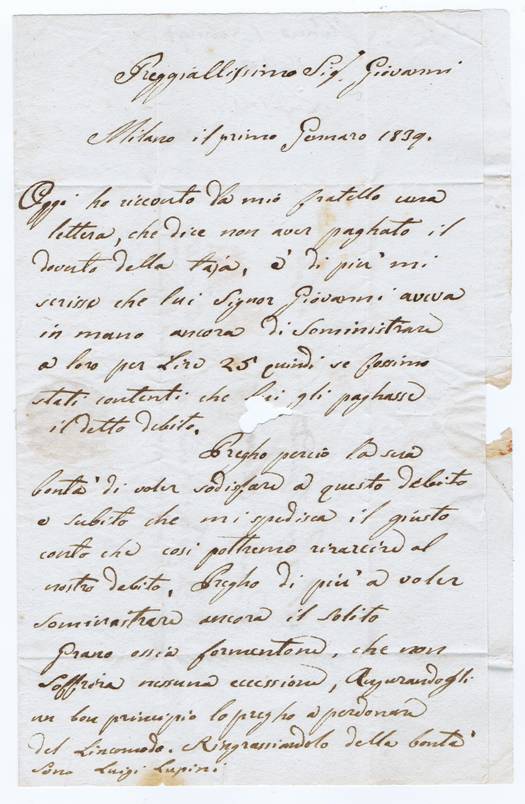 Preggiallissimo Sig.r Giovanni
Milano il primo Gennaro 1839.
Oggi ho ricceuto da mio fratello una
lettera, che dice non aver paghato il
dovuto della taja, è di piu' mi
scrisse che lui Signor Giovanni aveva
in mano ancora di Somministrare
a loro per Lire 25 quindi se fossimo
stati contenti che Lei gli paghasse
il detto debito.
Pregho percio la sua
bontà di voler sodisfare a questo debito
e subito che mi spedisca il giusto
conto che cosi pottremo risarcire al
nostro debito. Pregho di piu' a voler
sominastrare ancora il solito
Grano ossia formentone, che non
Soffrira nessuna ecessione, Augurandogli
un bon principio lo pregho a perdonare
del Lincomodo. Ringrassiandolo della bontà
Sono Luigi Lupini